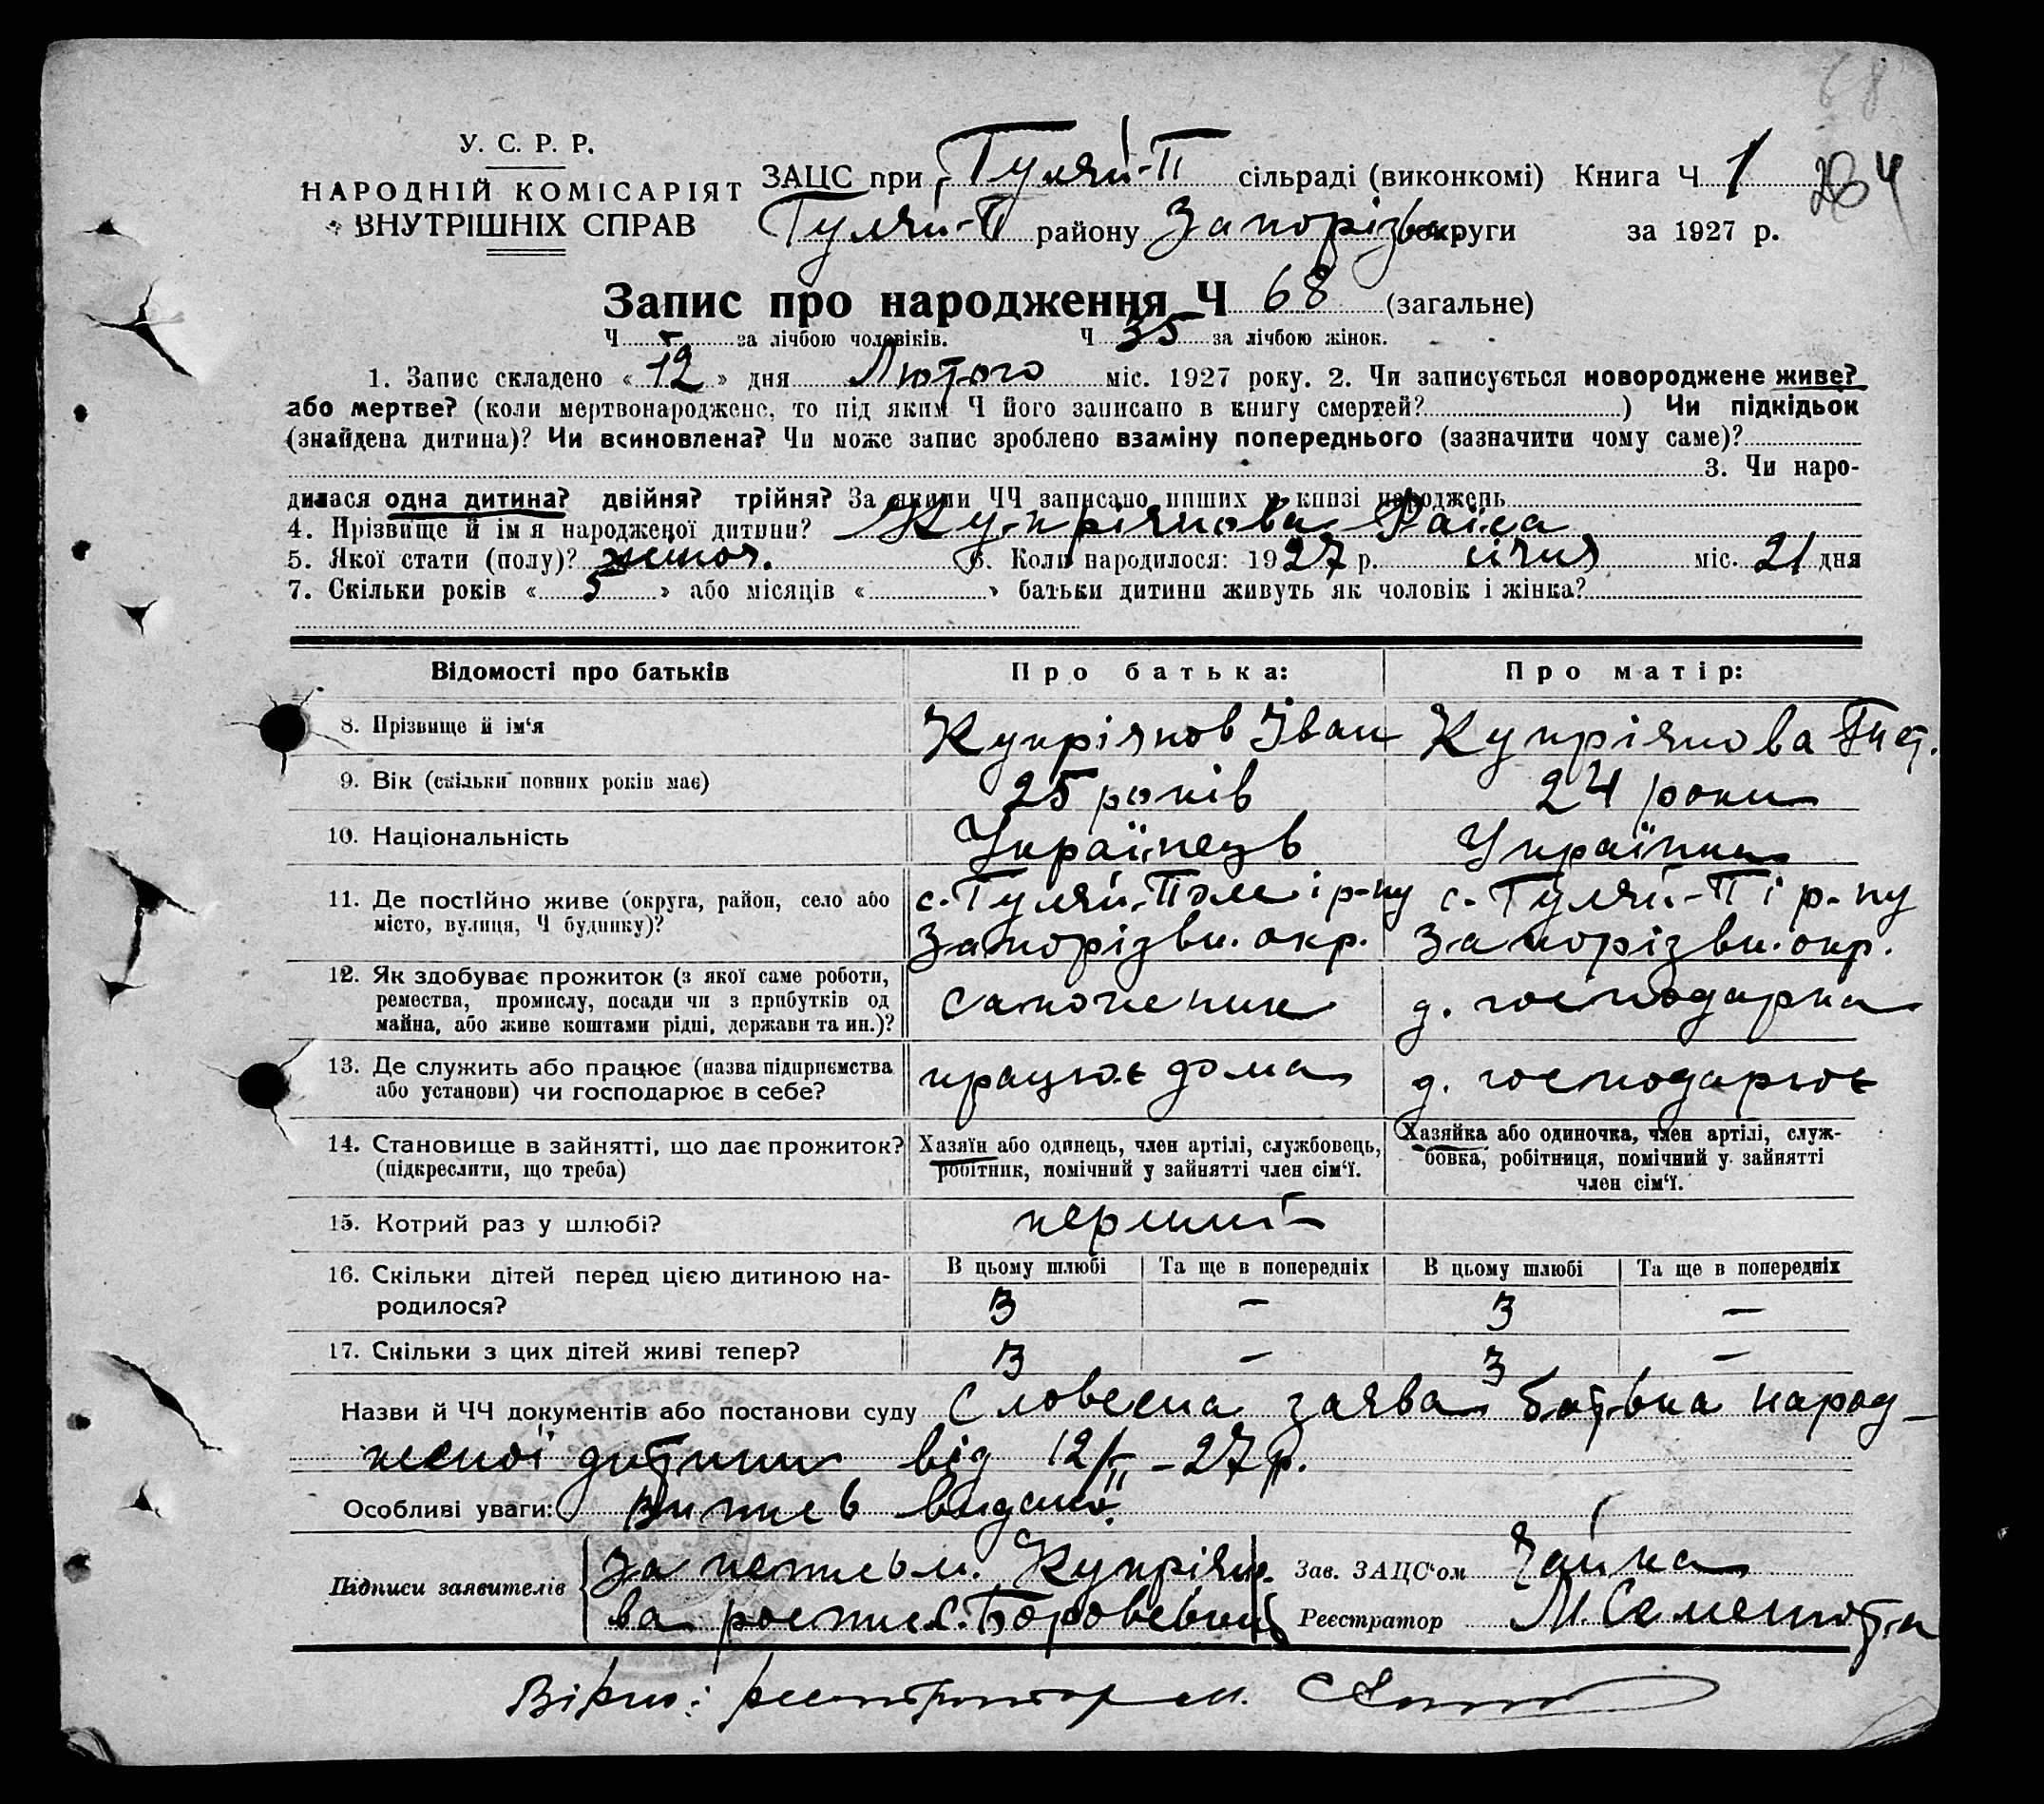 68
У. С. Р. Р.
НАРОДНІЙ КОМІСАРІЯТ
ВНУТРІШНІХ СПРАВ
ЗАЦС при Гуляй-П сільраді (виконкомі) Книга Ч 1
Гуляй-П району Запорізьк округи за 1927 р.
Запис про народження Ч 68 (загальне)
Ч за лічбою чоловіків. Ч 35 за лічбою жінок.
1. Запис складено « 12 » дня Лютого міс. 1927 року. 2. Чи записується новороджене живе?
або мертве? (коли мертвонароджене, то під яким Ч його записано в книгу смертей? ) Чи підкідьок
(знайдена дитина)? Чи всиновлена? Чи може запис зроблено взаміну попереднього (зазначити чому саме)?
3. Чи наро-
дилася одна дитина? двійня? трійня? За якими ЧЧ записано инших у книзі народжень
4. Прізвище й ім'я народженої дитини? Купріянова Раїса
5. Якої статі (полу)? жіноч. 6. Коли народилося: 1927 р. січня міс. 21 дня
7. Скільки років « 5 » або місяців « » батьки дитини живуть як чоловік і жінка?
Відомості про батьків Про батька: Про матір:
8. Прізвище й ім'я Купріянов Іван Купріянова
9. Вік (скільки повних років має) 25 років 24 роки
10. Національність Українець Українка
11. Де постійно живе (округа, район, село або с. Гуляй-Поле і р-ну с. Гуляй-П і р-ну
місто, вулиця, Ч будинку)? Запорізьк. окр. Запорізьк. окр.
12. Як здобуває прожиток (з якої саме роботи,
ремества, промислу, посади чи з прибутків од д. господарка
майна, або живе коштами рідні, держави та ин.)?
13. Де служить або працює (назва підприємства працює дома д. господарює
або установи) чи господарює в себе?
14. Становище в зайнятті, що дає прожиток? Хазяїн або одинець, член артілі, службовець, Хазяйка або одиночка, член артілі, служ-
(підкреслити, що треба) робітник, помічний у зайнятті член сім'ї. бовка, робітниця, помічний у зайнятті
член сім'ї.
15. Котрий раз у шлюбі? перший
16. Скільки дітей перед цією дитиною на- В цьому шлюбі Та ще в попередніх В цьому шлюбі Та ще в попередніх
родилося? 3 – 3 –
17. Скільки з цих дітей живі тепер? 3 – 3 –
Назви й ЧЧ документів або постанови суду Словесна заява батька народ-
женої дитини від 12/II-27 р.
Особливі уваги: Витяг видано.
Підписи заявителів За неписьм. Купріяно- Зав. ЗАЦС'ом Зайка
ва роспис. Реєстратор М.
Вірно: реєстратор